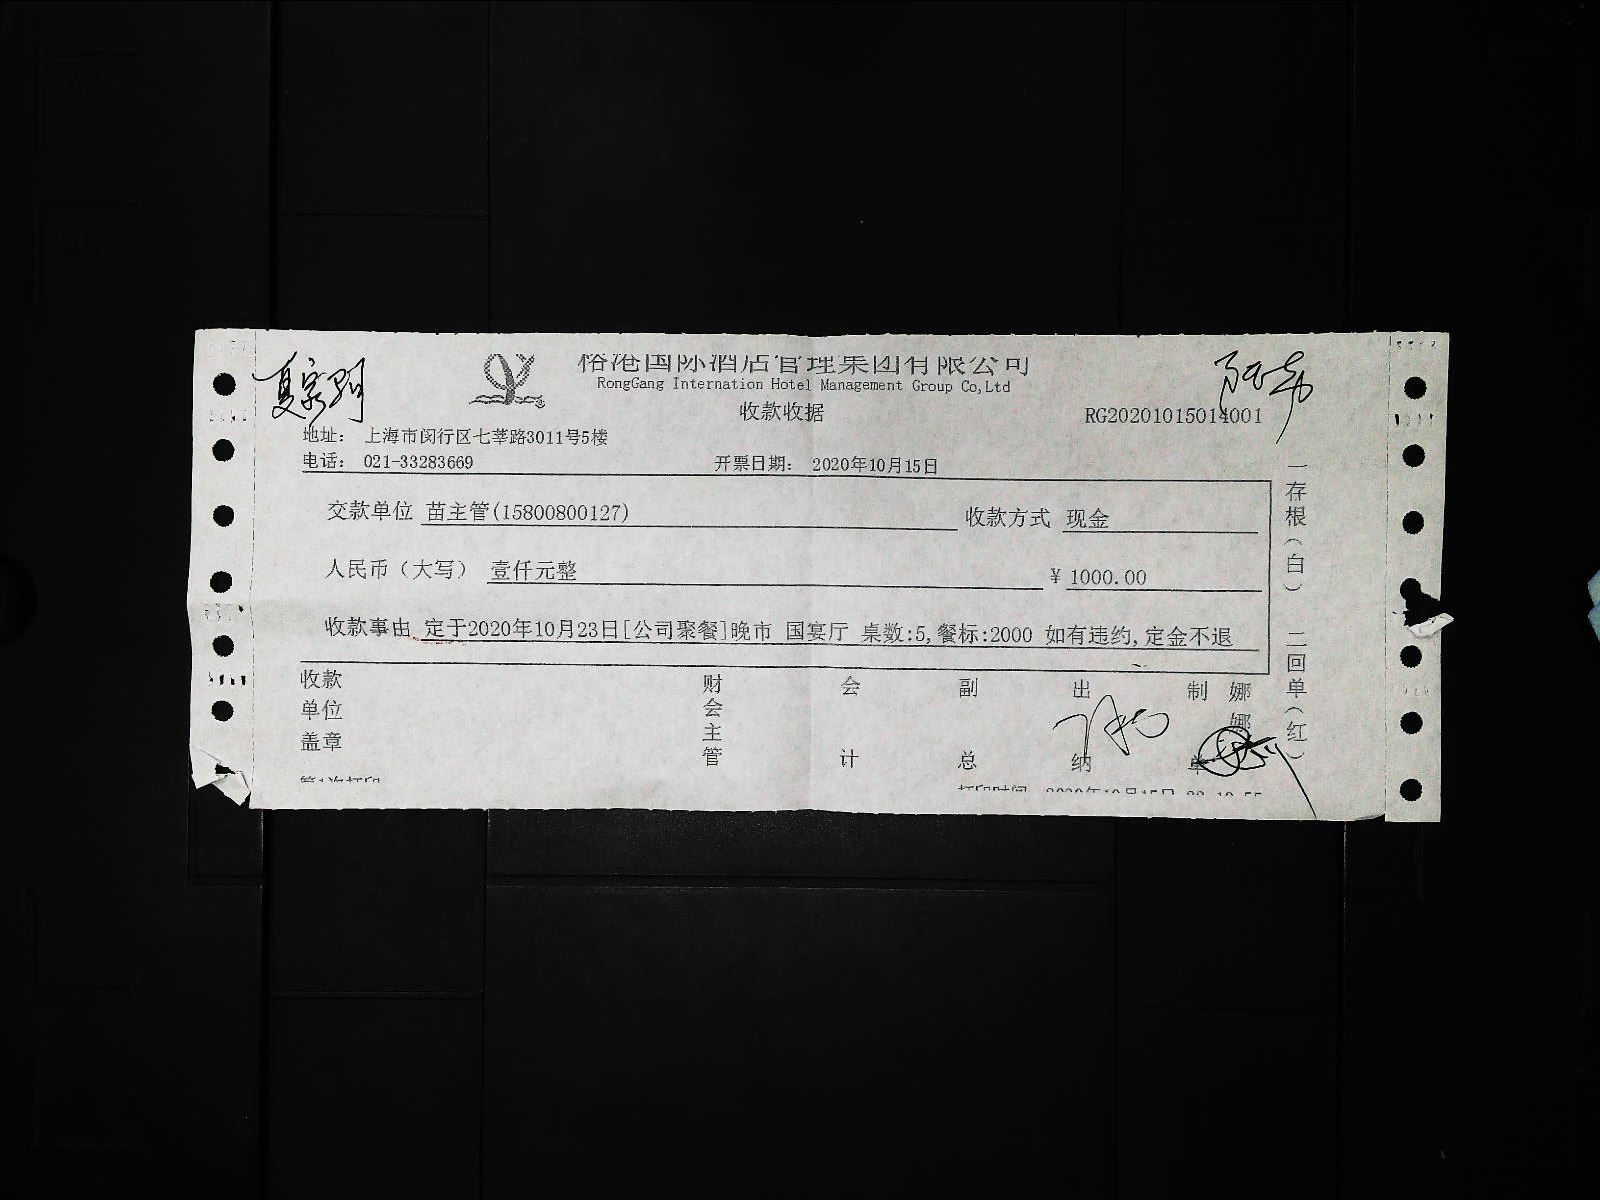 榕港国际酒店管理集团有限公司
RongGang Internation Hotel Management Group Co,Ltd
收款收据
RG20201015014001
地址： 上海市闵行区七莘路3011号5楼
电话： 021-33283669 开票日期： 2020年10月15日
交款单位 苗主管(15800800127) 收款方式 现金
人民币（大写） 壹仟元整 ¥ 1000.00
收款事由 定于2020年10月23日[公司聚餐]晚市 国宴厅 桌数:5,餐标:2000 如有违约,定金不退
一存根（白） 二回单（红）
收款单位盖章 财会主管 会计 副总 出纳 制单 娜娜
第1次打印
打印时间 2020年10月15日